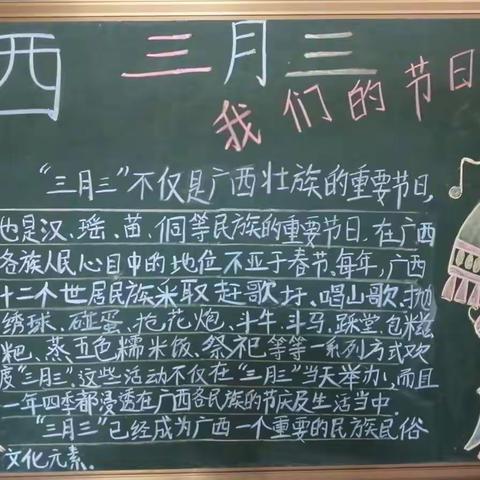 西 三月三
我们的节日
“三月三”不仅是广西壮族的重要节日,
也是汉、瑶、苗、侗等民族的重要节日.在广西
各族人民心目中的地位不亚于春节.每年,广西
十二个世居民族采取赶歌圩、唱山歌、抛
绣球、碰蛋、抢花炮、斗牛、斗马、踩堂、包糍
粑、蒸五色糯米饭、祭祀等等一系列方式欢
度“三月三”.这些活动不仅在“三月三”当天举办,而且
一年四季都浸透在广西各民族的节庆及生活当中.
“三月三”已经成为广西一个重要的民族民俗
文化元素.